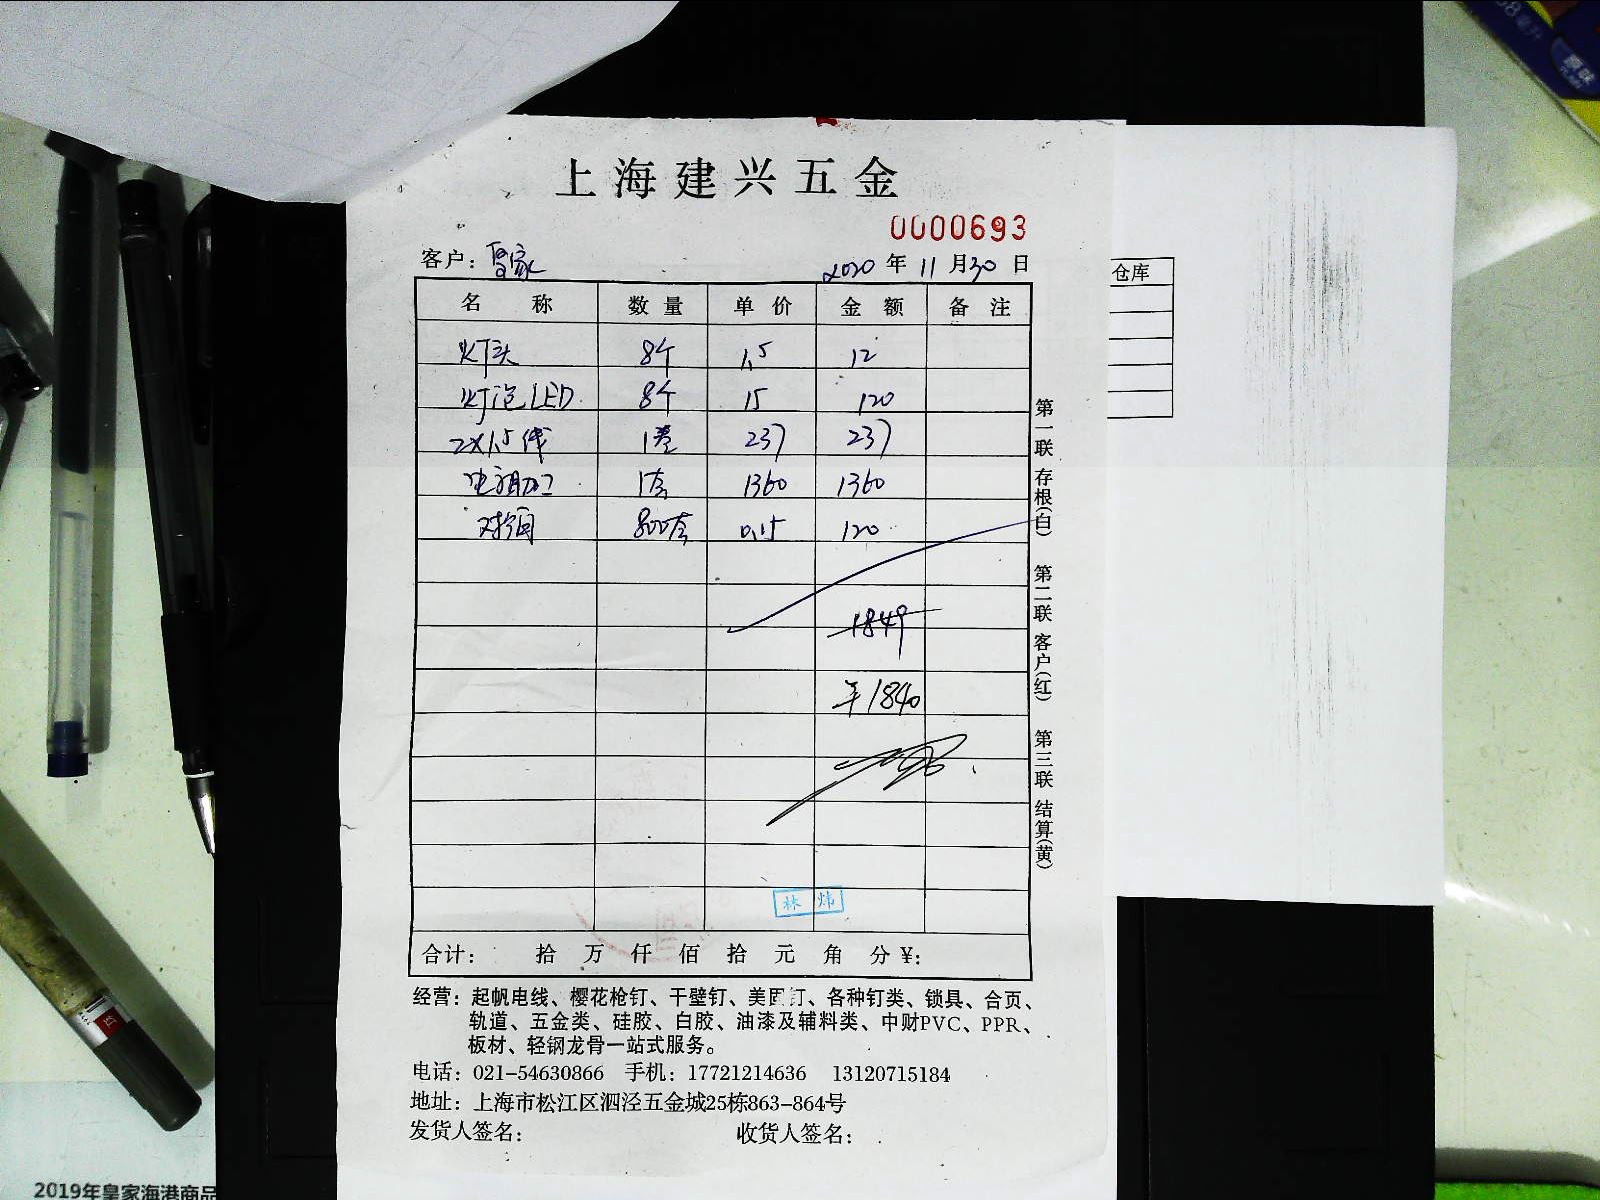 上海建兴五金
0000693
客户：皇家 2020年11月30日
名称 数量 单价 金额 备注
灯头 8个 1.5 12
灯泡LED 8个 15 120
2X1.5线 1卷 237 237
1套 1360 1360
800套 0.15 120
1849
¥1840
林炜
合计： 拾 万 仟 佰 拾 元 角 分 ¥：
经营：起帆电线、樱花枪钉、干壁钉、美固钉、各种钉类、锁具、合页、
轨道、五金类、硅胶、白胶、油漆及辅料类、中财PVC、PPR、
板材、轻钢龙骨一站式服务。
电话：021-54630866 手机：17721214636 13120715184
地址：上海市松江区泗泾五金城25栋863-864号
发货人签名： 收货人签名：
第一联 存根(白) 第二联 客户(红) 第三联 结算(黄)
仓库
原味
2019年皇家海港商品